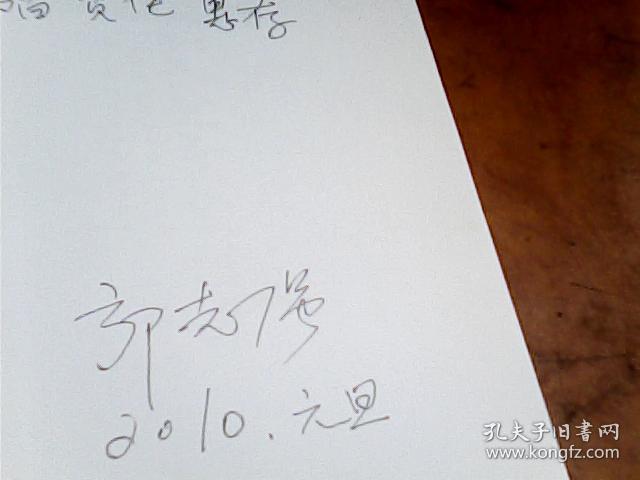 惠存
郭志强
2010.元旦
孔夫子旧书网
www.kongfz.com